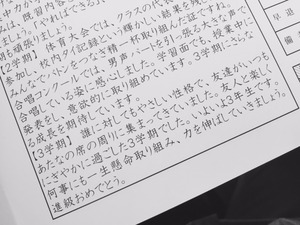 も頑張りましょう。
【2学期】体育大会では、クラスの代表
参加し、校内タイ記録という輝かしい結果を残
みんなでバトンをつなぎ精一杯取り組んだ証ですね。
合唱コンクールでは、男声パートを引っ張る大きな声で
合唱している姿に感心しました。学習面でも、授業中に
発表をし、意欲的に取り組めています。3学期にさらな
る成長を期待しています。
【3学期】誰に対してもやさしい性格で、友達がいつも
あなたの席の周りに集まってきていました。友人と楽し
くにぎやかに過ごした3学期でした。いよいよ3年生です。
何事にも一生懸命取り組み、力を伸ばしていきましょう。
進級おめでとう。
早退
備